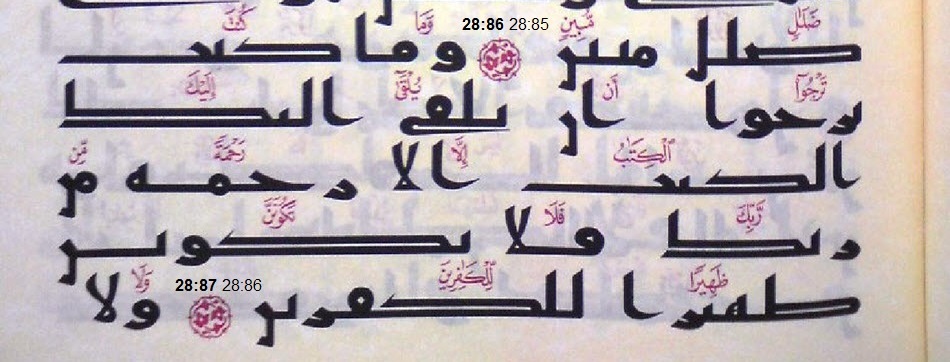 ضَلَٰلٍ مُّبِينٍ 28:85 28:86 وَمَا كُنتَ
ضلل مبين وما كنت
تَرْجُوٓا۟ أَن يُلْقَىٰٓ إِلَيْكَ
ترجوا ان يلقى اليك
ٱلْكِتَٰبُ إِلَّا رَحْمَةً مِّن
الكتب الا رحمه من
رَّبِّكَ فَلَا تَكُونَنَّ
ربك فلا تكونن
ظَهِيرًا لِّلْكَٰفِرِينَ 28:86 28:87 وَلَا
ظهيرا للكفرين ولا